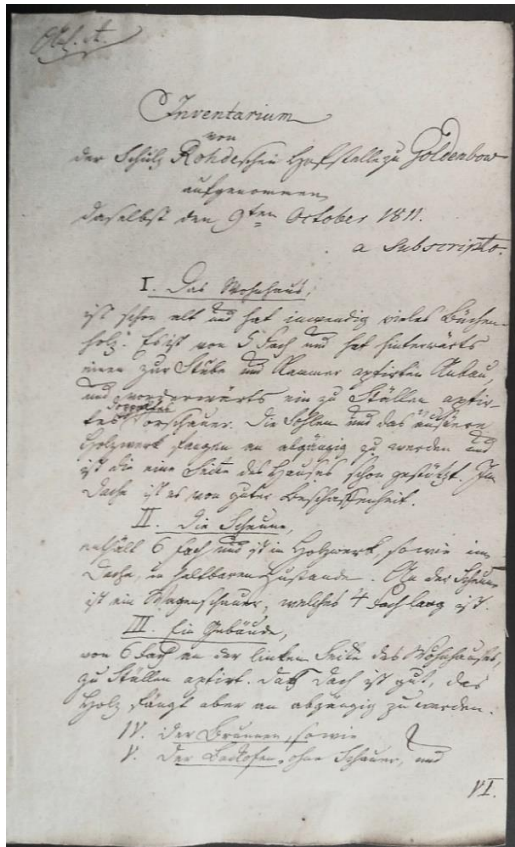 Inventarium
von
der Schulz Rohdeschen Hofstelle zu Goldenbow
aufgenommen
daselbst den 9ten October 1811.
a Subscripto.
I. Das Wohnhaus,
ist schon alt und hat inwendig vieles Büchen-
holz. Es ist von 5 Fach und hat hinterwärts
einen zur Stube und Kammer aptirten Anbau,
und vorwärts ein zu Ställen aptir-
tes Vorschauer. Die Sohlen und das äußere
Holzwerk fangen an abgängig zu werden und
ist die eine Seite des Hauses schon gestützt. Im
Dache ist es von guter Beschaffenheit.
II. Die Scheune,
enthält 6 Fach und ist in Holzwerk, sowie im
Dache, in haltbarem Zustande. An der Scheune
ist ein Wagenschauer, welches 4 Fach lang ist.
III. Ein Gebäude,
von 6 Fach an der linken Seite des Wohnhauses,
zu Ställen aptirt. Das Dach ist gut, das
Holz fängt aber an abgängig zu werden.
IV. Der Brunnen, sowie
V. Der Backofen, ohne Schauer, und
VI.